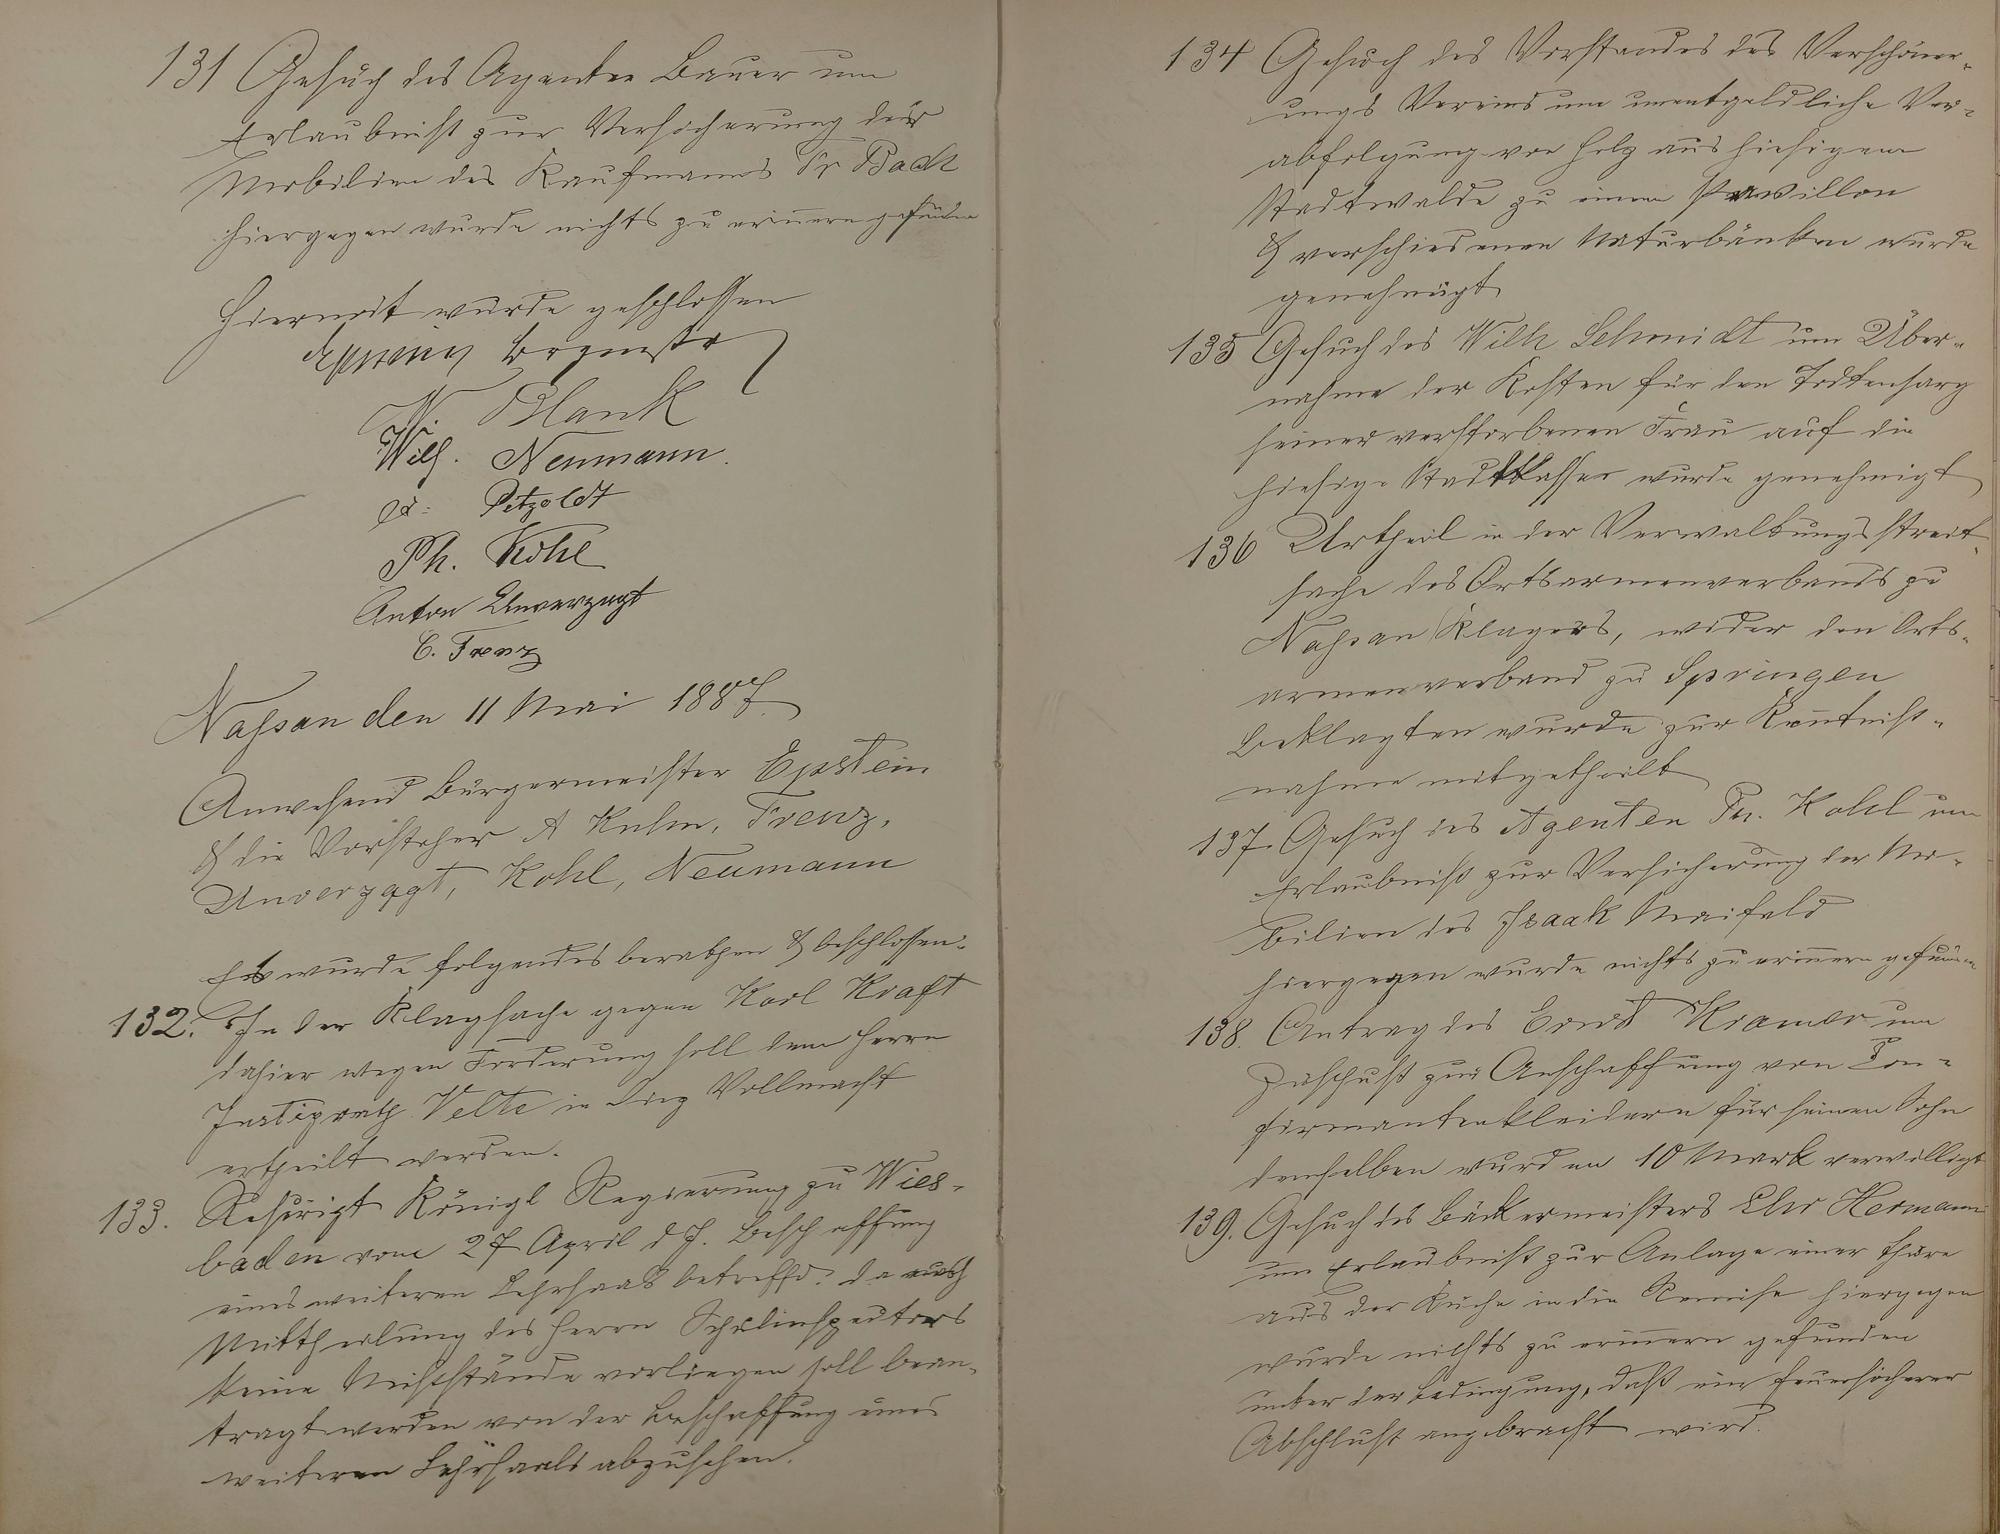 131 Gesuch des Agenten Bauer um
Erlaubniß zur Versicherung der
Mobilien des Kaufmanns Fr Bach
hiergegen wurde nichts zu erinnern gefunden
Hiermit wurde geschlossen
W. Blank
Wilh. Neumann.
Petzoldt
Ph. Kohl
Anton Unverzagt
C. Frenz
Nassau den 11 Mai 1887.
Anwesend Bürgermeister Epstein
& die Vorsteher A Kuhn, Frenz,
Unverzagt, Kohl, Neumann
Es wurde folgendes berathen & beschlossen.
132. In der Klagsache gegen Karl Kraft
dahier wegen Forderung soll dem Herrn
Justizrath Velte in Diez Vollmacht
ertheilt werden.
133. Rescript Königl Regierung zu Wies-
baden vom 27 April d J. Beschaffung
eines weiteren Lehrsaals betreffd. da nach
Mittheilung des Herrn Schulinspectors
keine Mißstände vorliegen soll bean-
tragt werden von der Beschaffung eines
weiteren Lehrsaals abzusehen.
134 Gesuch des Vorstandes des Verschöner-
ungs Vereins um unentgeldliche Ver-
abfolgung von Holz aus hiesigem
Stadtwalde zu einem Pavillon
& verschiedenen Naturbänken wurde
genehmigt
135 Gesuch des Wilh Schmidt um Über-
nahme der Kosten für den Todtensarg
seiner verstorbenen Frau auf die
hiesige Stadtkasse wurde genehmigt
136 Urtheil in der Verwaltungsstreit-
sache des Ortsarmenverbands zu
Nassau Klägers, wider den Orts-
armenverband zu Springen
Beklagten wurde zur Kenntniß-
nahme mitgetheilt
137. Gesuch des Agenten Ph. Kohl um
Erlaubniß zur Versicherung der Mo-
bilien des Isaak Maifeld
hiergegen wurde nichts zu erinnern gefunden
138. Antrag des Ernst Kramer um
Zuschuß zur Anschaffung von Con-
firmantenkleidern für seinen Sohn
demselben wurden 10 Mark verwilligt
139. Gesuch des Bäckermeisters Chr Hermann
um Erlaubniß zur Anlage einer Thüre
aus der Küche in die Remise hiergegen
wurde nichts zu erinnern gefunden
unter der Bedingung, daß ein feuersicherer
Abschluß angebracht wird.